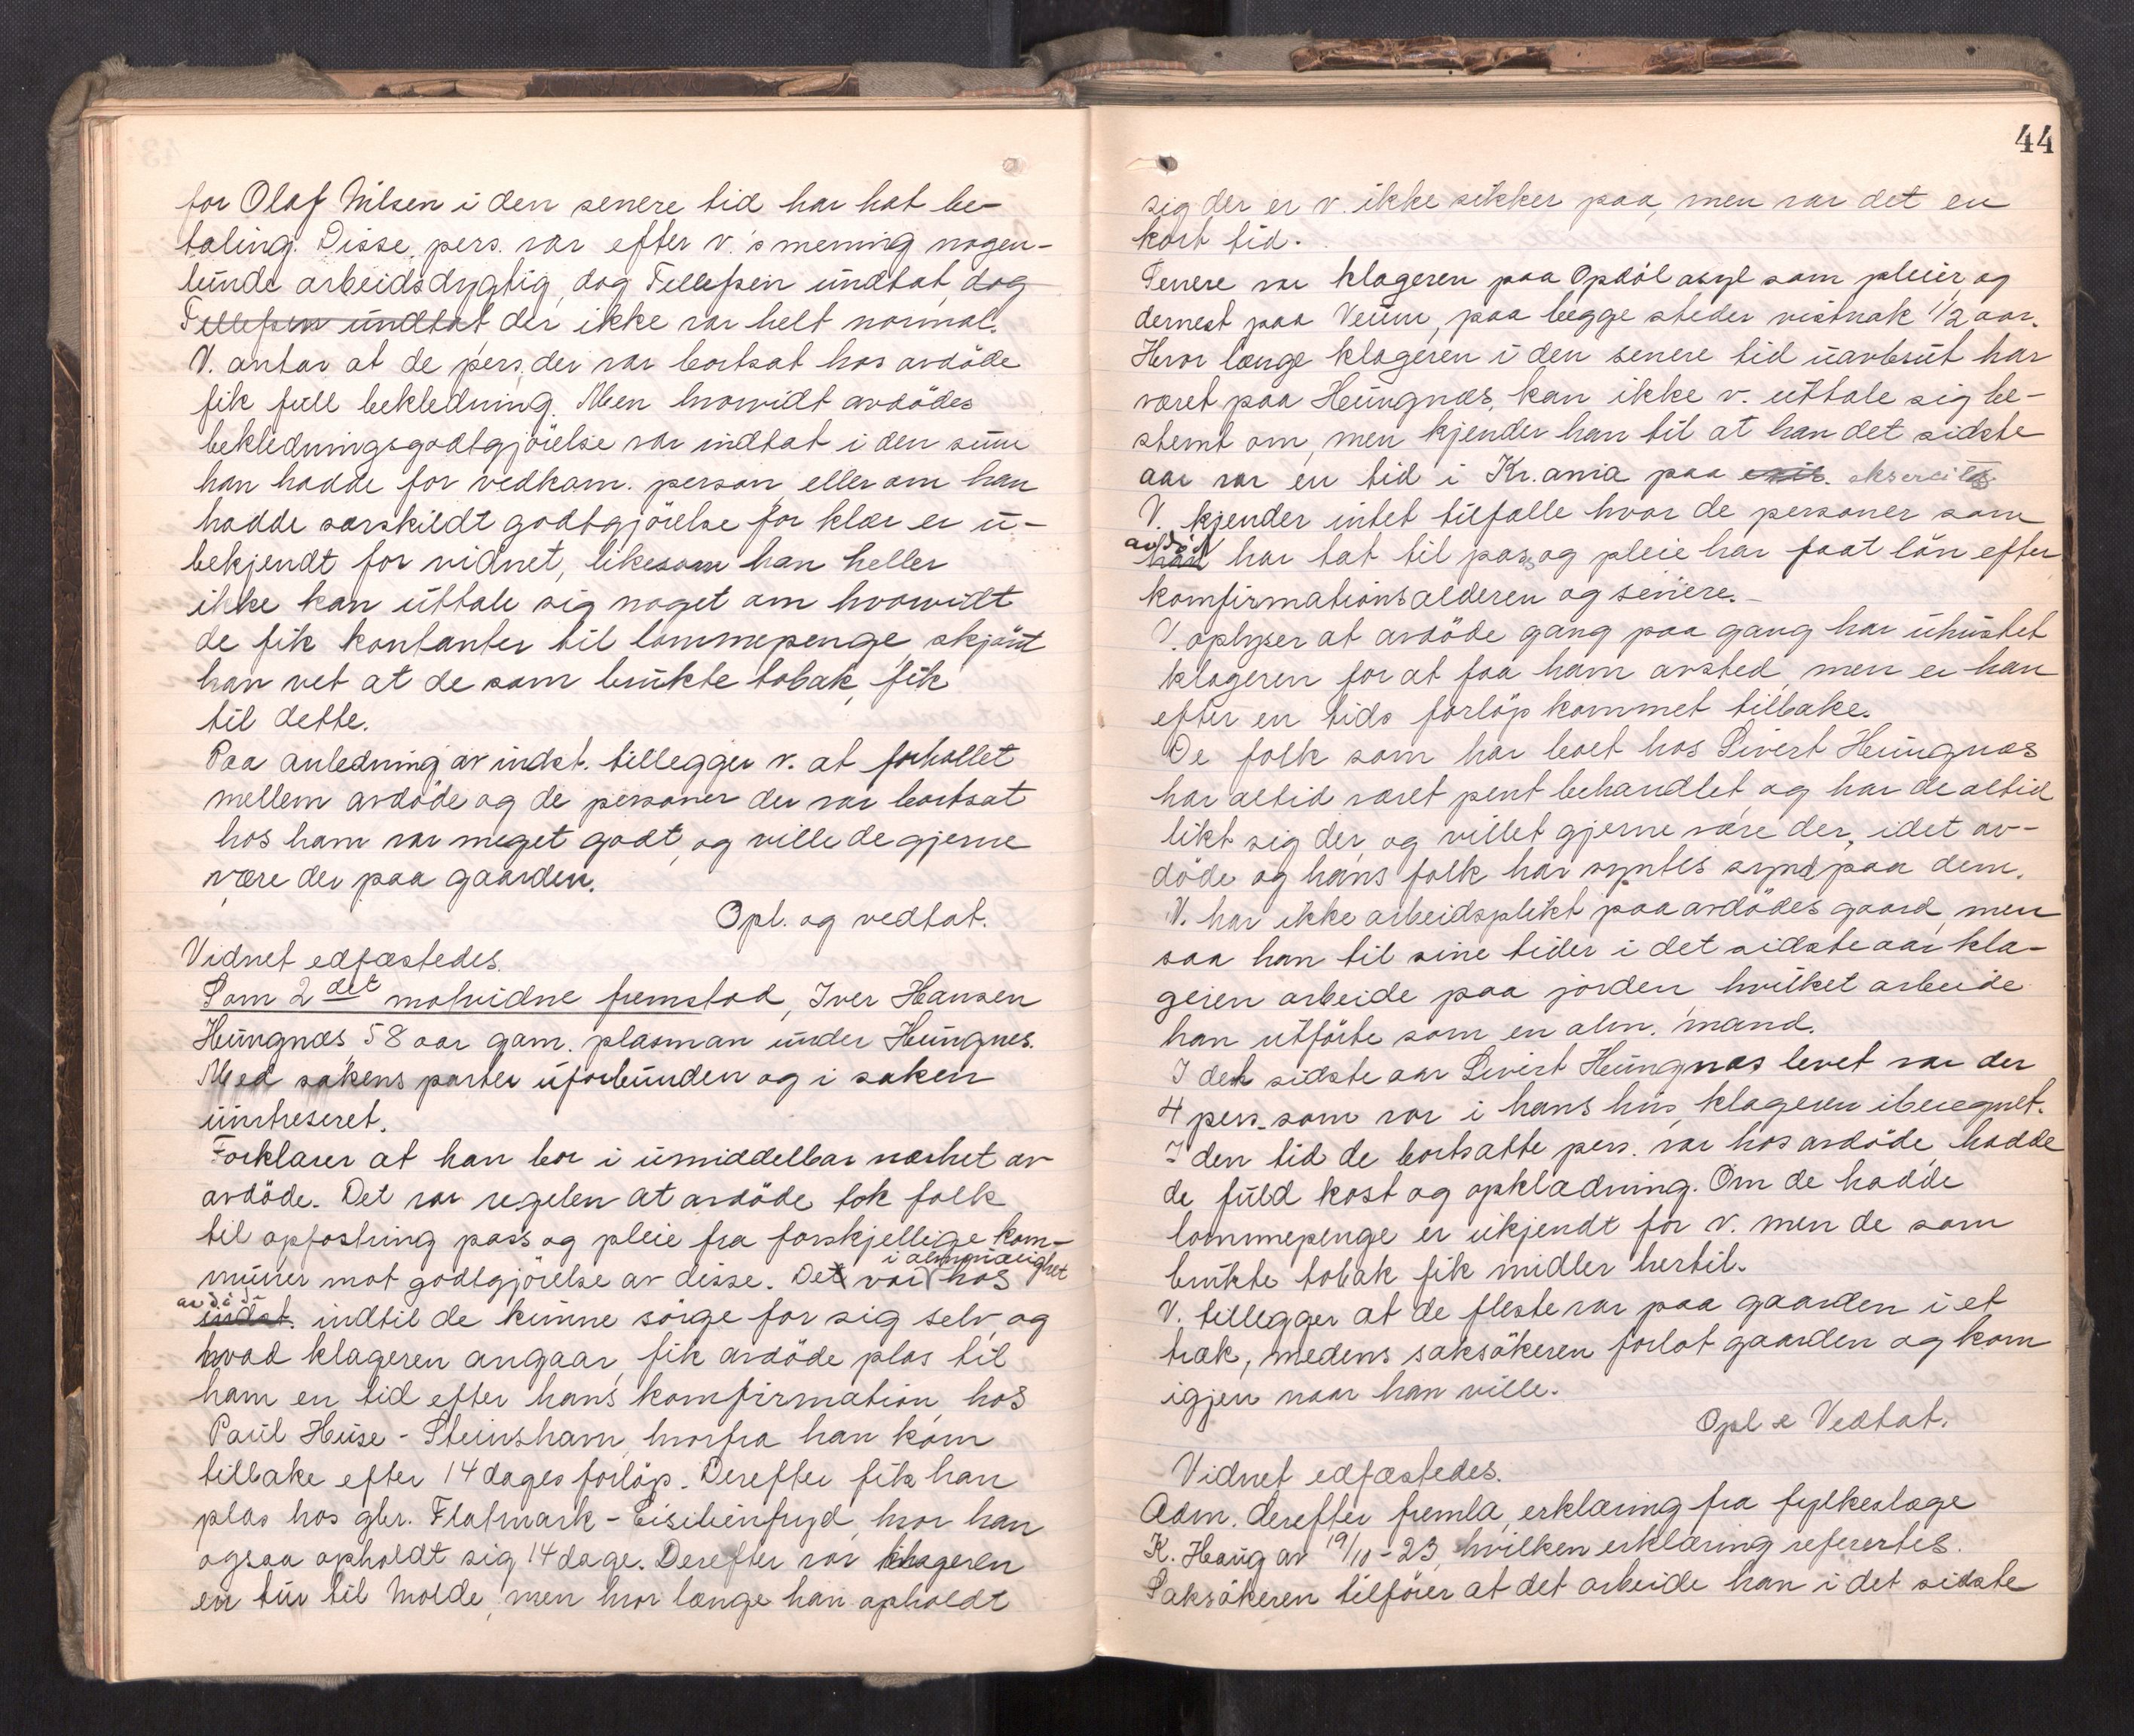 for Olaf Nilsen i den senere tid har hat be-
taling. Disse pers. var efter v.'s mening nogen-
lunde arbeidsdygtig, dog Tellefsen undtat, dog
Tellefsen undtat der ikke var helt normal.
V. antar at de pers. der var bortsat hos avdöde
fik full bekledning. Men hvorvidt avdödes
bekledningsgodtgjörelse var indtat i den sum
han hadde for vedkom. person, eller om han
hadde særskildt godtgjörelse for klær er u-
bekjendt for vidnet, likesom han heller
ikke kan uttale sig noget om hvorvidt
de fik kontanter til lommepenge, skjönt
han vet at de som brukte tobak, fik
til dette.
Paa anledning av indst. tillegger v. at forhollet
mellem avdöde og de personer der var bortsat
hos ham var meget godt, og ville de gjerne
være der paa gaarden.
Opl. og vedtat.
Vidnet edfæstedes.
Som 2det motvidne fremstod, Iver Hansen
Hungnæs 58 aar gam. plasman under Hungnes.
Med sakens parter uforbunden og i saken
uintreseret.
Forklarer at han bor i umiddelbar nærhet av
avdöde. Det var regelen at avdöde tok folk
til opfostring pass og pleie fra forskjellige kom-
i almmuelighet
muner mot godtgjörelse av disse. Det var hos
avdöde
indst. indtil de kunne sörge for sig selv, og
hvad klageren angaar, fik avdöde plas til
ham en tid efter hans komfirmation, hos
Paul Huse - Steinshamn, hvorfra han kom
tilbake efter 14 dages forlöp. Derefter fik han
plas hos gbr. Flatmark - Eisiliênfryd, hvor han
ogsaa opholdt sig 14 dage. Derefter var klageren
en tur til Molde, men hvor længe han opholdt
44
sig der er v. ikke sikker paa, men var det en
kort tid.
Senere var klageren paa Opdöl asyl som pleier, og
dernest paa Veum, paa begge steder vistnok 1/2 aar.
Hvor længe klageren i den senere tid uavbrut har
været paa Hungnæs, kan ikke v. uttale sig be-
stemt om, men kjender han til at han det sidste
aar var en tid i Kr.ania paa eksersits
V. kjender intet tilfælle hvor de personer som
avdöde
han har tat til pass og pleie har faat lön efter
komfirmationsalderen og senere.-
V. oplyser at avdöde gang paa gang har uhustet
klageren for at faa ham avsted, men er han
efter en tids forlöp kommet tilbake.
De folk som har boet hos Sivert Hungnæs
har altid været pent behandlet, og har de altid
likt sig der, og villet gjerne være der, idet av-
döde og hans folk har syntes synd paa dem.
V. har ikke arbeidsplikt paa avdödes gaard, men
saa han til sine tider i det sidste aar kla-
geren arbeide paa jorden hvilket arbeide
han utförte som en alm. mand.
I det sidste aar Sivert Hungnæs levet var der
4 pers. som var i hans hus, klageren iberegnet.
I den tid de bortsatte pers. var hos avdöde, hadde
de fuld kost og opklædning. Om de hadde
lommepenge er ukjendt for v. men de som
brukte tobak fik midler hertil.
V. tillegger at de fleste var paa gaarden i et
træk, medens saksökeren forlot gaarden og kom
igjen naar han ville.
Opl & Vedtat.
Vidnet edfæstedes.
Adm. derefter fremla, erklæring fra fylkeslæge
K. Haug av 19/10-23, hvilken erklæring referertes.
Saksökeren tilförer at det arbeide han i det sidste